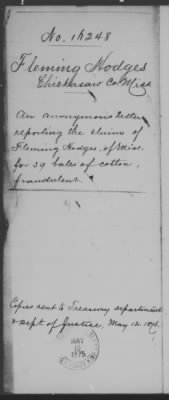 No. 16248
Fleming Hodges
Chickasaw Co. Miss
An anonymous letter
reporting the claim of
Fleming Hodges, of Miss.
for 39 bales of cotton,
fraudulent.
Copies sent to Treasury department
& Dept of Justice, May 12. 1875.
MAY
10
1875